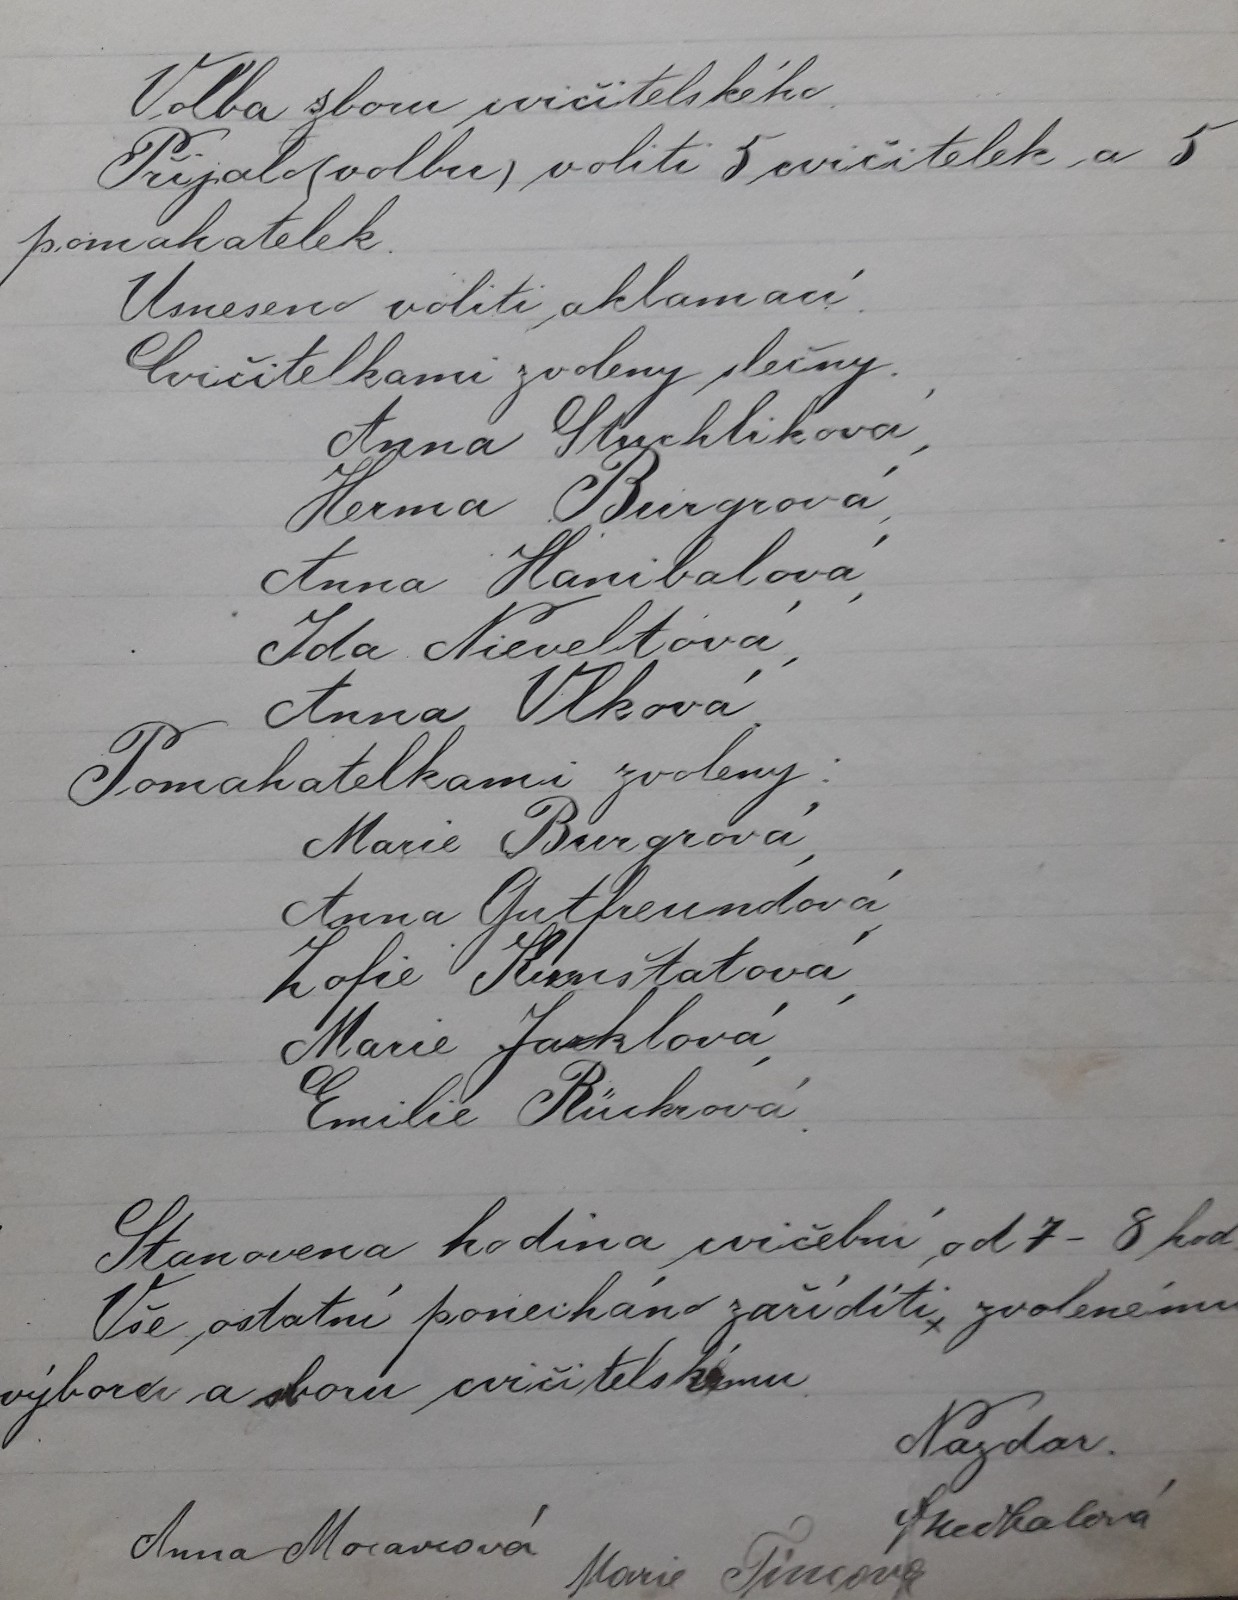 Volba sboru cvičitelského.
Přijato (volbu) voliti 5 cvičitelek a 5
pomahatelek.
Usneseno voliti aklamací.
Cvičitelkami zvoleny slečny.
Anna Stuchliková,
Herma Burgrová,
Anna Hanibalová,
Ida Nieveltová,
Anna Vlková.
Pomahatelkami zvoleny:
Marie Burgrová,
Anna Gutfreundová,
Žofie Kunštatová,
Marie Jacklová,
Emilie Rückrová.
Stanovena hodina cvičební od 7 - 8 hod.
Vše ostatní ponecháno zaříditi zvolenému
výboru a sboru cvičitelskému.
Nazdar.
Anna Moravcová
Marie